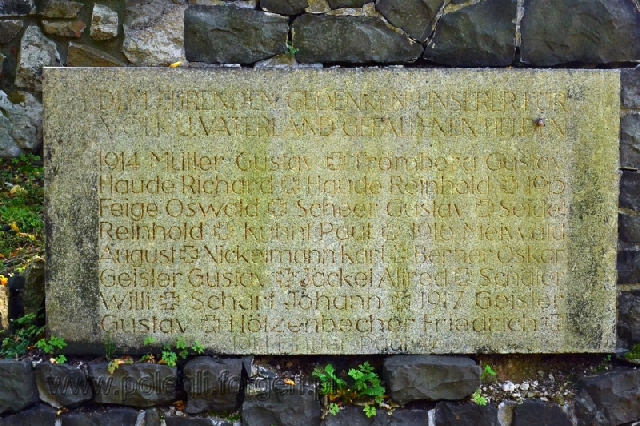 DEM EHRENDEM GEDENKEN UNSERER FÜR
VOLK U. VATERLAND GEFALLENEN HELDEN
1914 Müller Gustav ✠ Fromberg Gustav
Haude Richard ✠ Haude Reinhold ✠ 1915
Feige Oswald ✠ Scheer Gustav ✠ Seidel
Reinhold ✠ Kühnt Paul ✠ 1916 Meiwald
August ✠ Nickelmann Karl ✠ Berner Oskar
Geisler Gustav ✠ Jäckel Alfred ✠
Willi ✠ Scharf Johann ✠ 1917 Geisler
Gustav ✠ Hötzenbecher Friedrich ✠